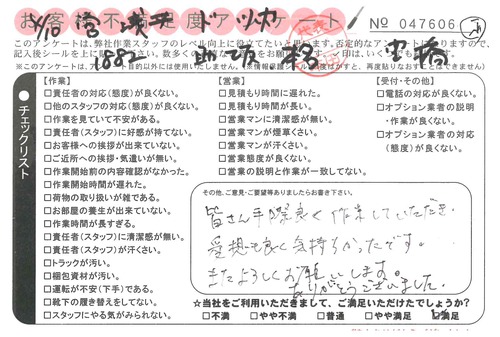 お客様不満足度アンケート
No 047606
このアンケートは、弊社作業スタッフのレベル向上に役立てたいと
記入後シールを上に
※このアンケートは、アンケート目的以外には使用いたしません。
チェックリスト
【作業】
□責任者の対応(態度)が良くない。
□他のスタッフの対応(態度)が良くない。
□作業を見ていて不安がある。
□責任者(スタッフ)に好感が持てない。
□お客様への挨拶が出来ていない。
□ご近所への挨拶・気遣いが無い。
□作業開始前の内容確認がなかった。
□作業開始時間が遅れた。
□荷物の取り扱いが雑である。
□お部屋の養生が出来ていない。
□作業時間が長すぎる。
□責任者(スタッフ)に清潔感が無い。
□責任者(スタッフ)が汗くさい。
□トラックが汚い。
□梱包資材が汚い。
□運転が不安(下手)である。
□靴下の履き替えをしてない。
□スタッフにやる気がみられない。
【営業】
□見積もり時間に遅れた。
□見積もり時間が長い。
□営業マンに清潔感が無い。
□営業マンが煙草くさい。
□営業マンが汗くさい。
□営業態度が良くない。
□営業の説明と作業が一致してない。
【受付・その他】
□電話の対応が良くない。
□オプション業者の説明
・作業が良くない。
□オプション業者の対応
(態度)が良くない。
その他、ご意見・ご要望等ありましたらお書き下さい。
皆さん手際良く作業していただき、
愛想も良く気持ちよかったです。
またよろしくお願いします。
ありがとうございました。
☆当社をご利用いただきまして、ご満足いただけたでしょうか?
□不満 □やや不満 □普通 □やや満足 □満足